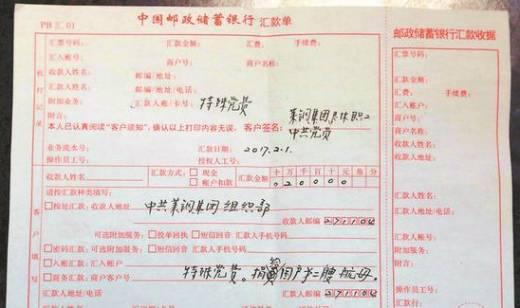 PB汇01 中国邮政储蓄银行 汇款单
汇票号码: 汇款金额: 汇费: 手续费:
汇入账号: 商户号: 商户名称:
收款人姓名: 邮编/地址:
汇款人姓名: 邮编/地址:
附加业务: 汇款人账/卡号: 特殊党费
附言: 莱钢集团退休职工
本人已认真阅读“客户须知”,确认以上打印内容无误。 客户签名: 中共党员
业务流水号: 汇款日期: 2017.2.1.
操作员工号: 授权人工号:
收款人姓名: 汇款方式: 现金 账户扣款 汇款金额 十万千百十元角分
020000
请按汇款种类填写:
按址汇款:收款人地址: 中共莱钢集团组织部
收款人邮编 271104
可选附加服务: 投单回执 短信回音 汇款人手机号码
密码汇款:可选附加服务: 短信回音 汇款人手机号码
入账汇款:汇入账户
商务汇款:商户客户号 特殊党费。捐费用于二艘航母。
汇款人地址/电话 汇款人邮编 271104
打印记录
客户填写
邮政储蓄银行汇款收据
汇票号码:
汇款金额:
汇费:
手续费:
汇入账户:
商户号:
商户名称:
收款人姓名:
收款人地址:
汇款人姓名:
汇款人地址/电话:
汇款人账号:
附加业务:
附言:
业务流水号:
汇款日期:
操作员工号: